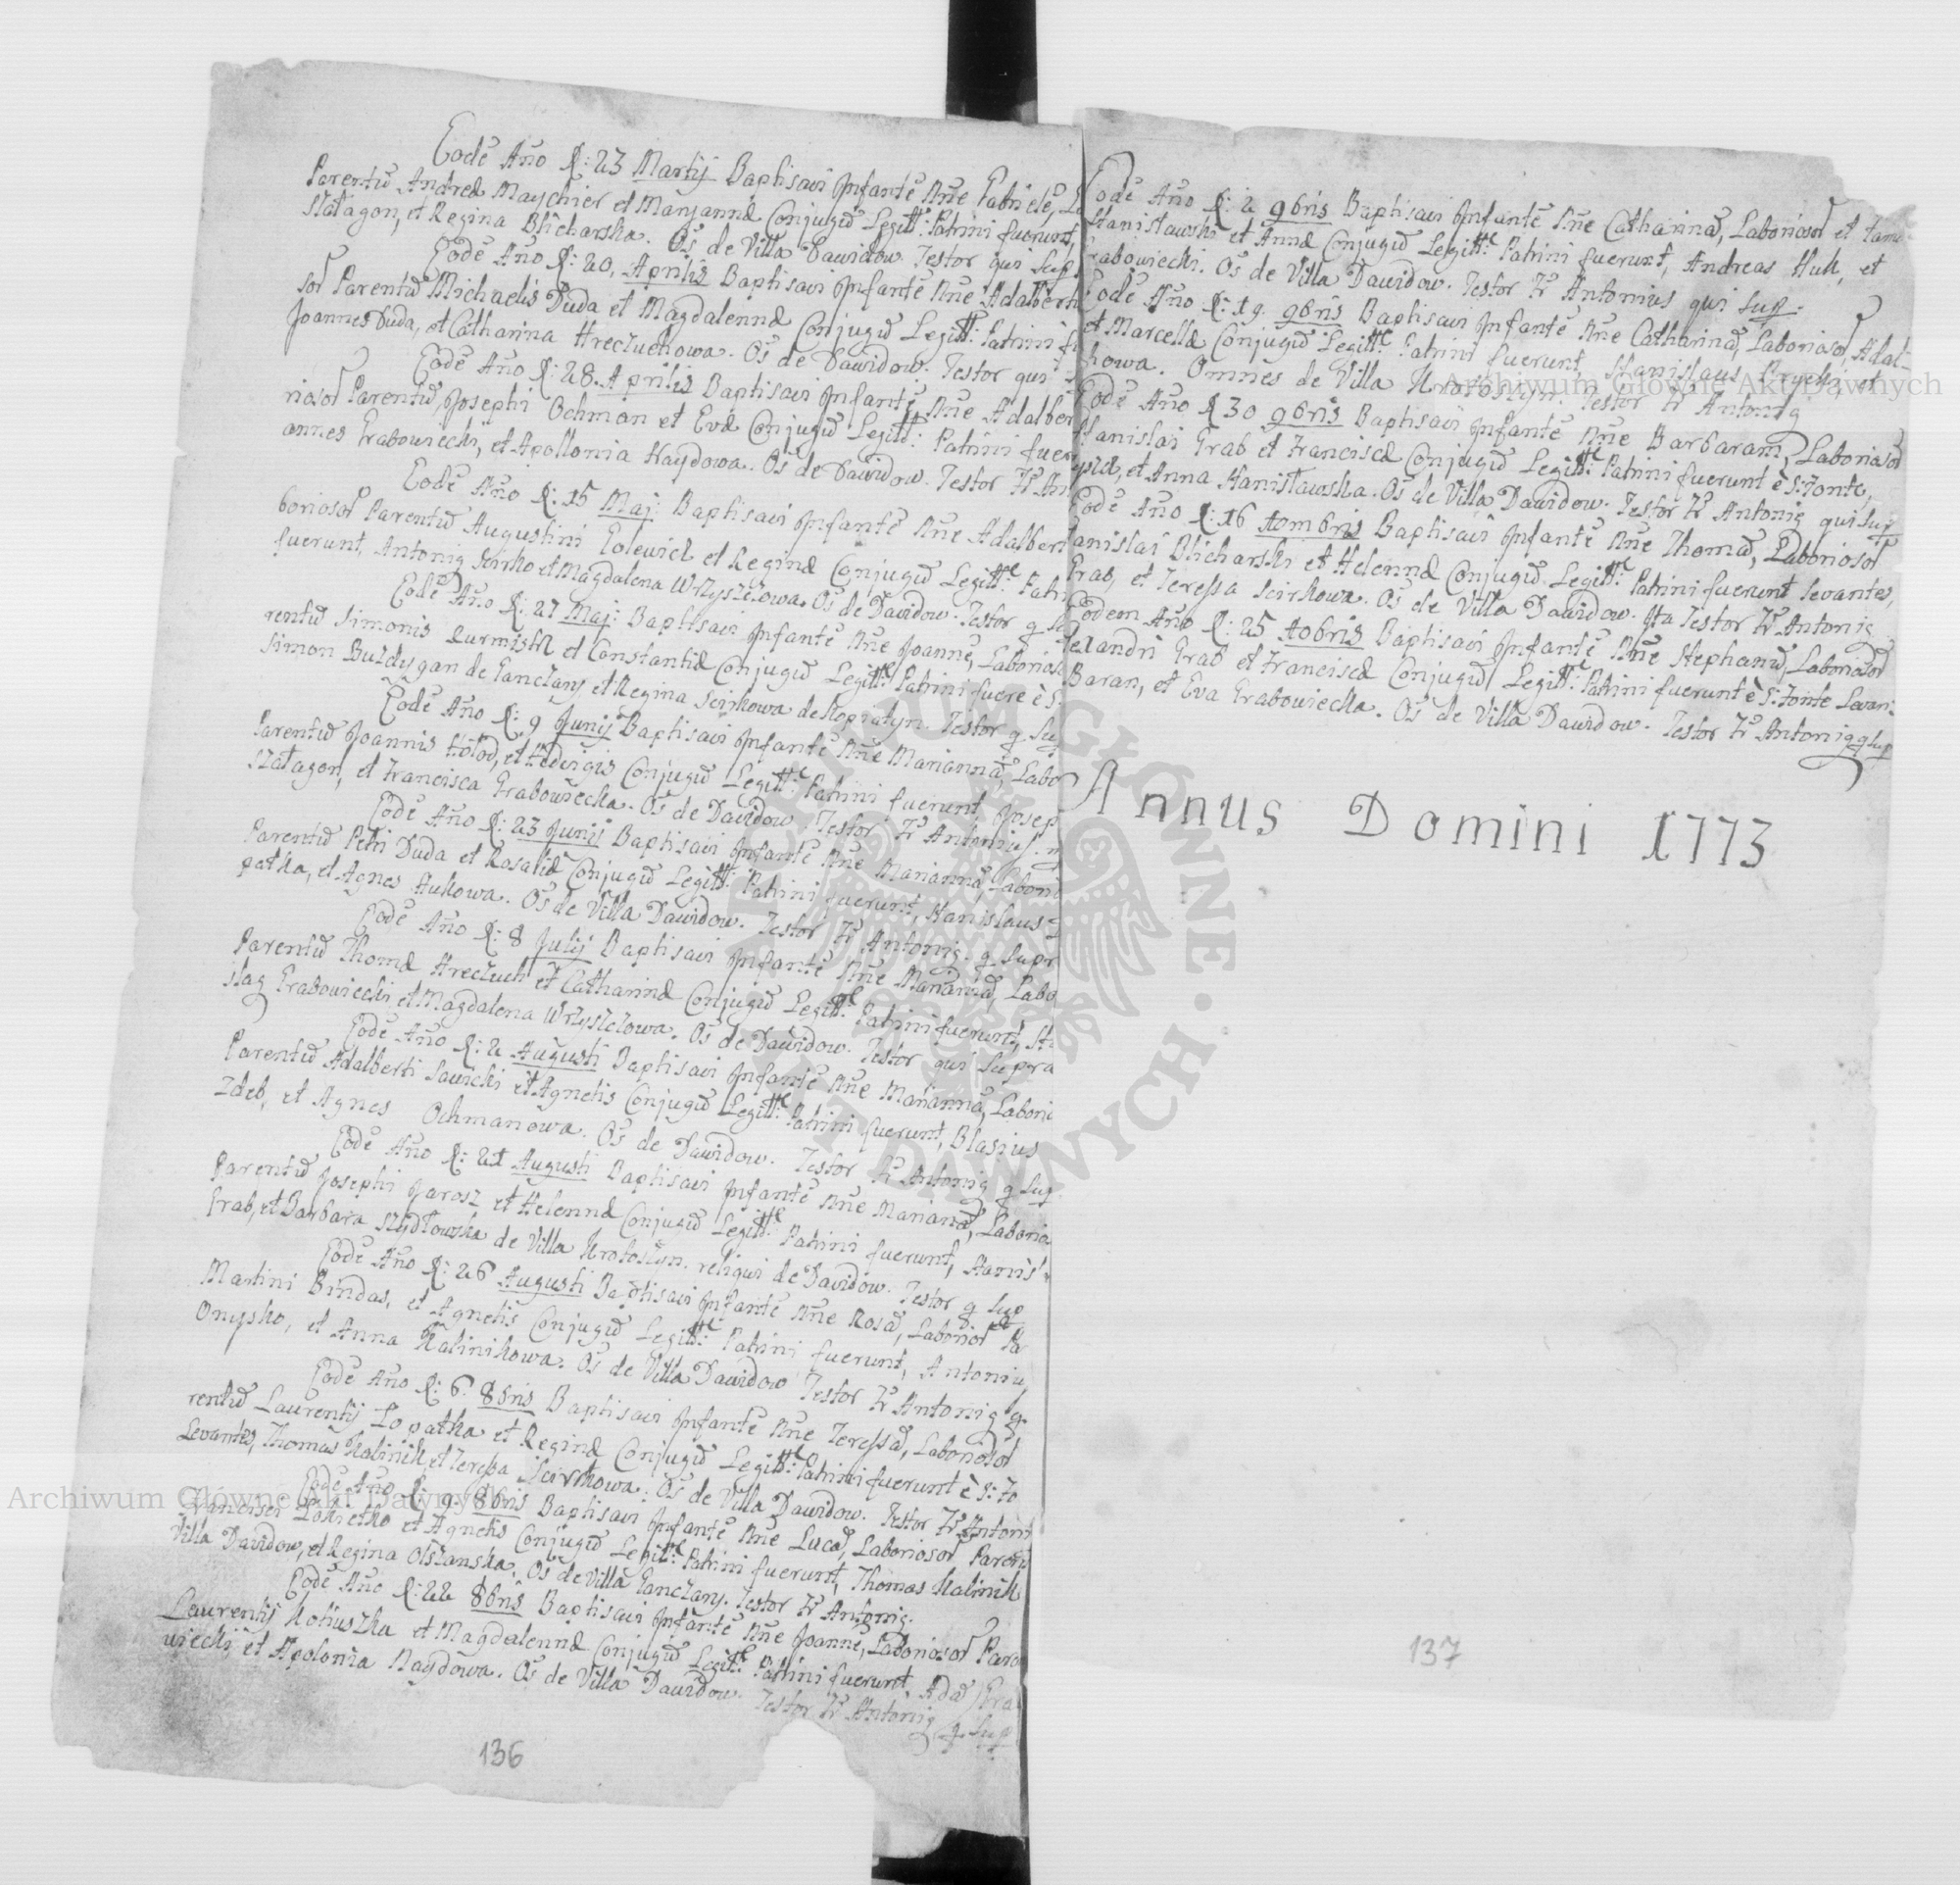 Eodē Año d: 23 Martij Baptisavi Infantē Nñe Gabrielē, La
Parentū Andreæ Maychier et Maryannæ Conjugū Legittᵉ: Patrini fuerunt,
Szałagon, et Regina Blicharska. Oēs de Villa Dawidow. Testor qui Sup
Eodē Año d: 20, Aprilis Baptisavi Infantē Nñe Adalbert
sor Parentū Michaelis Duda et Magdalennæ Conjugū Legitt: Patrini f
Joannes Duda, et Catharina Hreczuchowa. Oēs de Dawidow. Testor qui
Eodē Año d: 28. Aprilis Baptisavi Infantē Nñe Adalber
riosor Parentū, Josephi Ochman et Evæ Conjugū Legitt: Patrini fuer
annes Grabowiecki, et Apollonia Haydowa. Oēs de Dawidow. Testor Fr An
Eodē Año d: 15 Maj: Baptisavi Infantē Nñe Adalbert
boriosor Parentū Augustini Golewicz et Reginæ Conjugū Legittᵉ: Patri
fuerunt, Antonig Scirko et Magdalena Wrzyszczowa. Oēs de Dawidow. Testor q
Eodē Año d: 27 Maj: Baptisavi Infantē Nñe Joannē, Laborios
rentū Simonis Burmistrz et Constantiæ Conjugū Legittᵉ: Patrini fuere è S.
Simon Buzdygan de Ganczary et Regina Scirkowa de Kopiatyn. Testor q Sup
Eodē Año d: 9 Junij Baptisavi Infantē Nñe Mariannā, Labo
Parentū Joannis Hołod, et Hedvigis Conjugū Legittᵉ: Patrini fuerunt, Josep
Szałagon, et Francisca Grabowiecka. Oēs de Dawidow. Testor Fr Antonius
Eodē Año d: 23 Junij Baptisavi Infantē Nñe Mariannā, Labori
Parentū Petri Duda et Rosaliæ Conjugū Legitt: Patrini fuerunt, Stanislaus
patka, et Agnes Hukowa. Oēs de Villa Dawidow. Testor Fr Antonig. q Supr
Eodē Año d: 8 Julij Baptisavi Infantē Nñe Mariannā, Labo
Parentū Thomæ Hreczuch et Catharinæ Conjugū Legittᵉ: Patrini fuerunt, St
slag Grabowiecki et Magdalena Wrzyszczowa. Oēs de Dawidow. Testor qui Supra
Eodē Año d: 2 Augusti Baptisavi Infantē Nñe Mariannā, Labori
Parentū Adalberti Sawicki et Agnetis Conjugū Legittᵉ: Patrini fuerunt, Blasius
Zdeb, et Agnes Ochmanowa. Oēs de Dawidow. Testor Fr Antonig q Sup
Eodē Año d: 21 Augusti Baptisavi Infantē Nñe Mariannā, Laborio
Parentū Josephi Jarosz et Helennæ Conjugū Legittᵉ: Patrini fuerunt,
Grab, et Barbara Szydłowska de Villa Krotoszyn. reliqui de Dawidow. Testor q Sup
Eodē Año d: 26 Augusti Baptisavi Infantē Nñe Rosā, Laborior Pa
Martini Bindas, et Agnetis Conjugū Legittᵉ: Patrini fuerunt, Antoniu
Onysko, et Anna Kalinikowa. Oēs de Villa Dawidow Testor Fr Antonig q
Eodē Año d: 6. 8bris Baptisavi Infantē Nñe Teressā, Laboriosor
rentū Laurentij Łopatka et Reginæ Conjugū Legittᵉ: Patrini fuerunt è S: Fo
Levantes, Thomas Kalinik, et Teressa Scirkowa. Oēs de Villa Dawidow. Testor Fr Antoni
Eodē Año d: 9. 8bris Baptisavi Infantē Nñe Lucā, Laboriosor Parent
Francisci Łokietko et Agnetis Conjugū Legittᵉ: Patrini fuerunt, Thomas Kalinik
Villa Dawidow, et Regina Olszanska. Oēs de Villa Ganczary. Testor Fr Antonig.
Eodē Año d: 22 8bris Baptisavi Infantē Nñe Joannē, Laboriosor Paren
Laurentij Kotiuszka et Magdalennæ Conjugū Legittᵉ: Patrini fuerunt Adā Gra
wiecki, et Apolonia Naydowa. Oēs de Villa Dawidow. Testor Fr Antonig q Sup
136
Eodē Año d: 2 9bris Baptisavi Infantē Nñe Catharinā, Laboriosor et fam
Stanisławski et Annæ Conjugū Legittᵉ: Patrini fuerunt, Andreas Huk, et
Grabowiecki. Oēs de Villa Dawidow. Testor Fr Antonius qui Sup
Eodē Año d: 19. 9bris Baptisavi Infantē Nñe Catharinā, Laboriosor, Adal-
et Marcellæ Conjugū Legittᵉ: Patrini fuerunt, Stanislaus et
howa. Omnes de Villa Krotoszyn. Testor Fr Antonig
Eodē Año d 30 9bris Baptisavi Infantē Nñe Barbaram, Laboriosor
Stanislai Grab et Franciscæ Conjugū Legittᵉ: Patrini fuerunt è S: Fonte,
et Anna Stanisławska. Oēs de Villa Dawidow. Testor Fr Antonig qui Sup
Eodē Año d: 16 10mbris Baptisavi Infantē Nñe Thomā, Laboriosor
Stanislai Blicharski et Helennæ Conjugū Legittᵉ: Patrini fuerunt Levantes,
Grab, et Teressa Scirkowa. Oēs de Villa Dawidow. Ita Testor Fr Antonig
Eodem Año d: 25 10bris Baptisavi Infantē Nñe Stephanū, Laboriosor
lexandri Grab et Franciscæ Conjugū Legittᵉ: Patrini fuerunt è S: Fonte Levan:
Baran, et Eva Grabowiecka. Oēs de Villa Dawidow. Testor Fr Antonig q Sup
Annus Domini 1773
137
Archiwum Główne Akt Dawnych
Archiwum Główne Akt Dawnych
ARCHIWUM GŁÓWNE AKT DAWNYCH